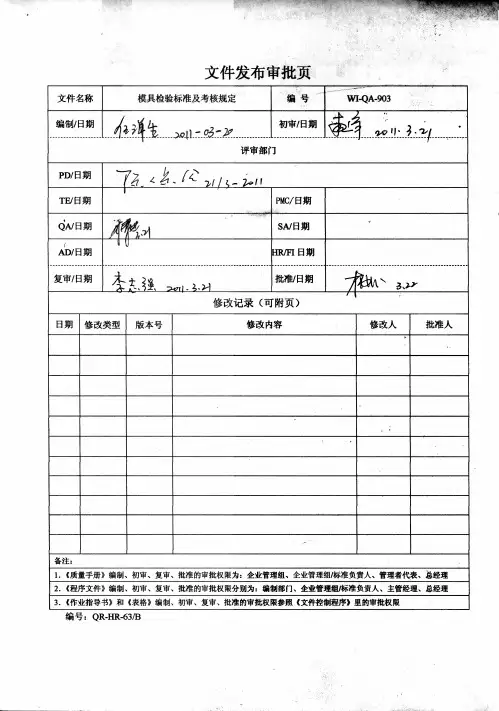 文件发布审批页
文件名称 模具检验标准及考核规定 编 号 WI-QA-903
编制/日期 2011-03-20 初审/日期 2011.3.21
评审部门
PD/日期 21/3-2011
TE/日期 PMC/日期
QA/日期 SA/日期
AD/日期 HR/FI 日期
复审/日期 李志强 2011.3.21 批准/日期 3.22
修改记录（可附页）
日期 修改类型 版本号 修改内容 修改人 批准人
备注：
1.《质量手册》编制、初审、复审、批准的审批权限为：企业管理组、企业管理组/标准负责人、管理者代表、总经理
2.《程序文件》编制、初审、复审、批准的审批权限分别为：编制部门、企业管理组/标准负责人、主管经理、总经理
3.《作业指导书》和《表格》编制、初审、复审、批准的审批权限参照《文件控制程序》里的审批权限
编号：QR-HR-63/B